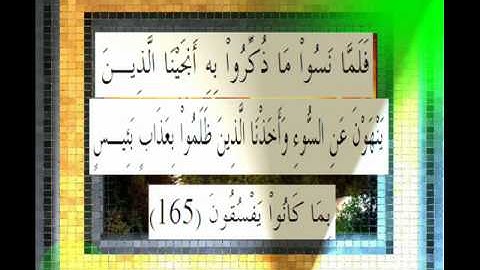 فَلَمَّا نَسُواْ مَا ذُكِّرُواْ بِهِ أَنجَيْنَا الَّذِيـــنَ
يَنْهَوْنَ عَنِ السُّوءِ وَأَخَذْنَا الَّذِينَ ظَلَمُواْ بِعَذَابٍ بَئِيـــسٍ
بِمَا كَانُواْ يَفْسُقُونَ (165)